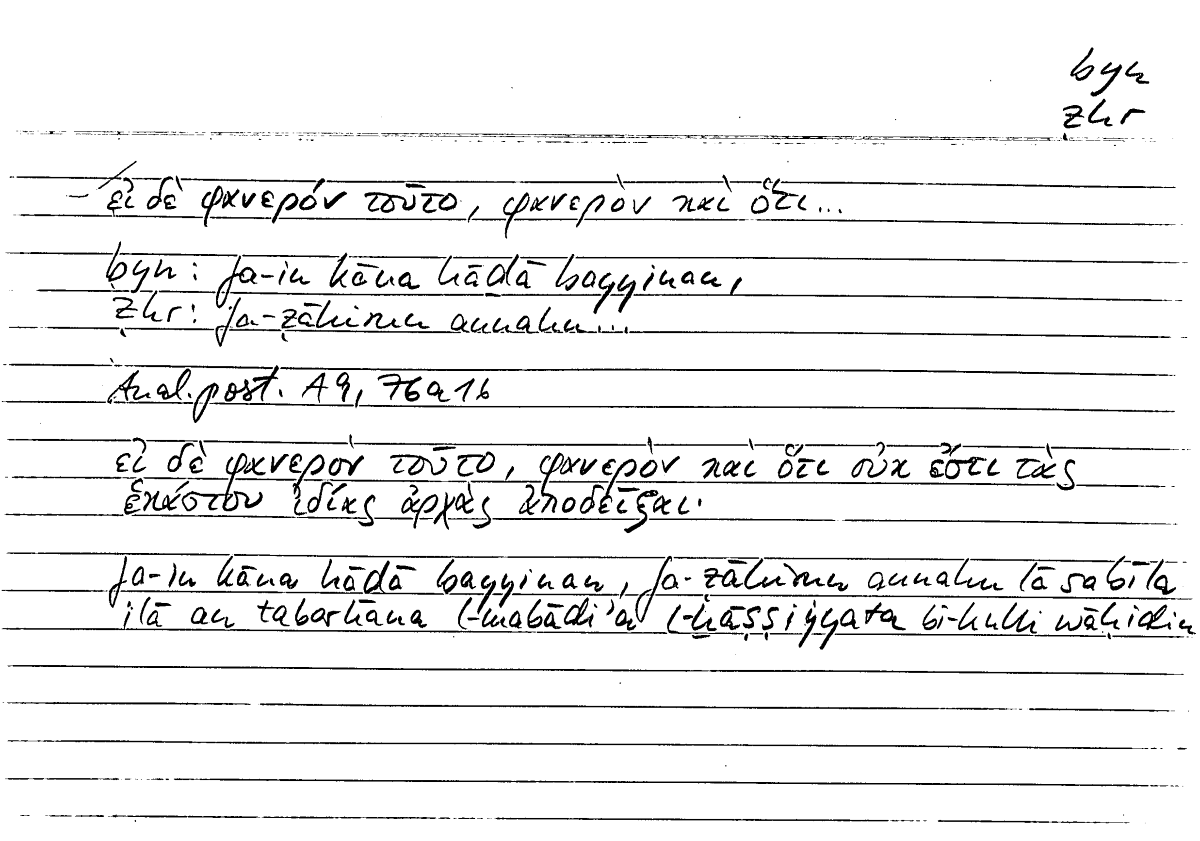 byn
ẓhr
– εἰ δὲ φανερόν τοῦτο, φανερὸν καὶ ὅτι...
byn: fa-in kāna hāḏā bayyinan,
ẓhr: fa-ẓāhirun annahu...
Anal. post. A 9, 76a16
εἰ δὲ φανερὸν τοῦτο, φανερὸν καὶ ὅτι οὐκ ἔστι τὰς
ἑκάστου ἰδίας ἀρχὰς ἀποδεῖξαι·
fa-in kāna hāḏā bayyinan, fa-ẓāhirun annahu lā sabīla
ilā an tabarhana l-mabādi'a l-ḫāṣṣiyyata bi-kulli wāḥidin